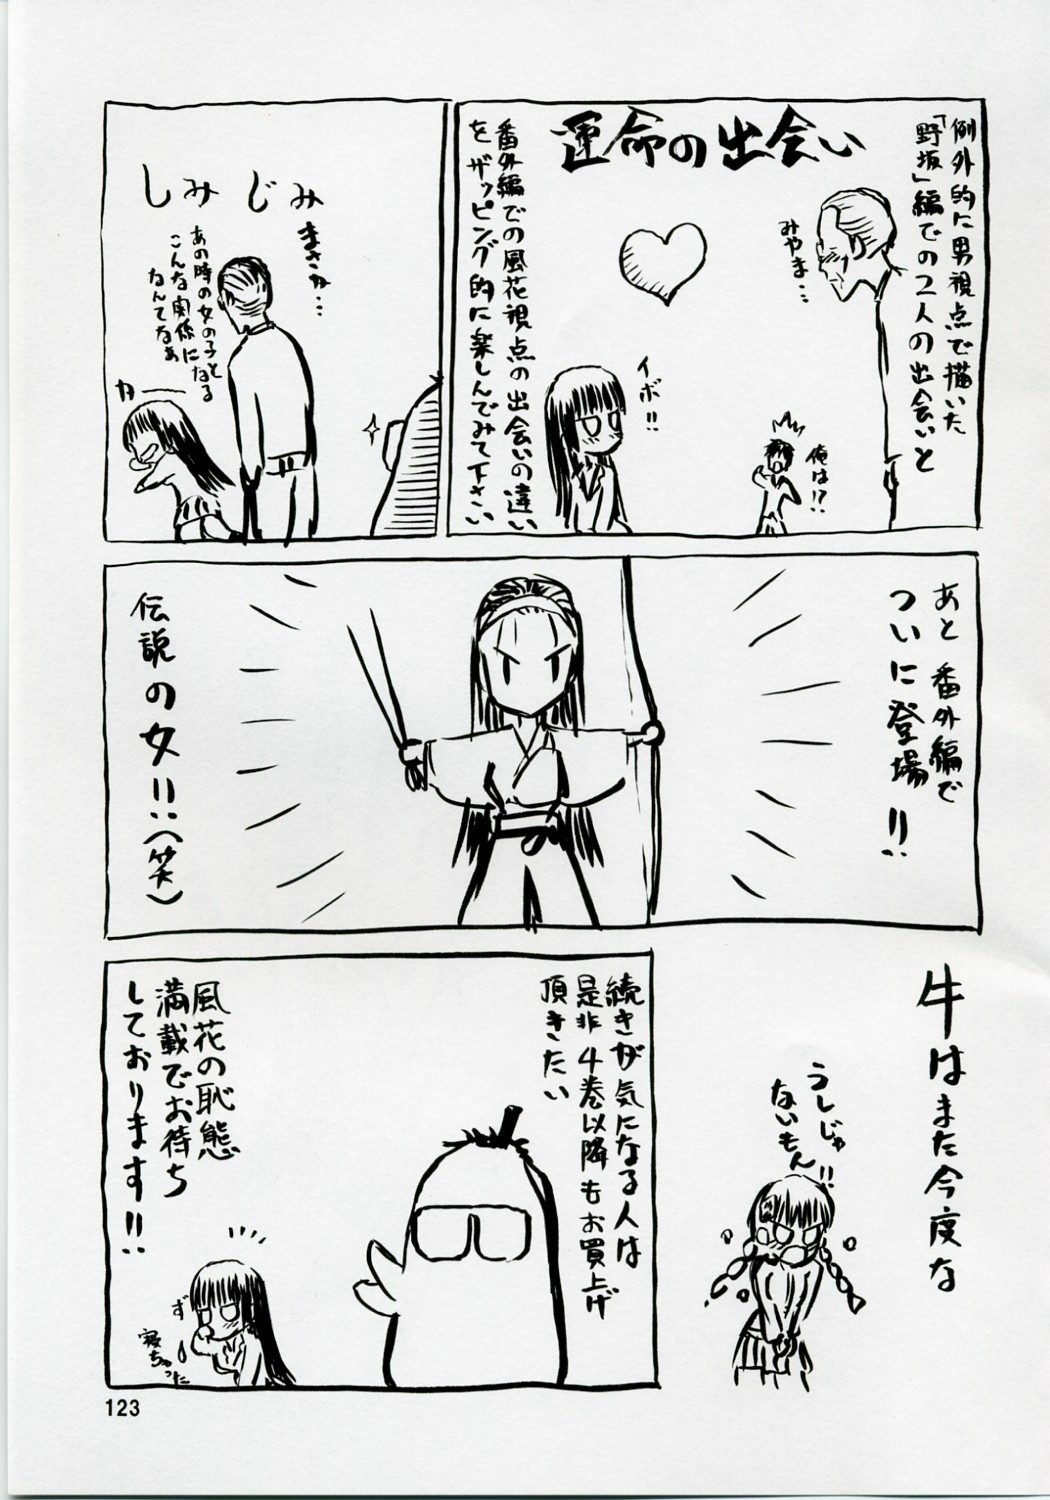 例外的に男視点で描いた
「野坂」編での２人の出会いと
運命の出会い
みやま…
俺は!?
イボ!!
番外編での風花視点の出会いの違い
をザッピング的に楽しんでみて下さい
しみじみ
まさか…
あの時の女の子と
こんな関係になる
なんてなあ
カー
あと番外編で
ついに登場!!
伝説の女!!(笑)
牛はまた今度な
うしじゃ
ないもん!!
続きが気になる人は
是非４巻以降もお買上げ
頂きたい
風花の恥態
満載でお待ち
しております!!
ず
寝ちゃった
123